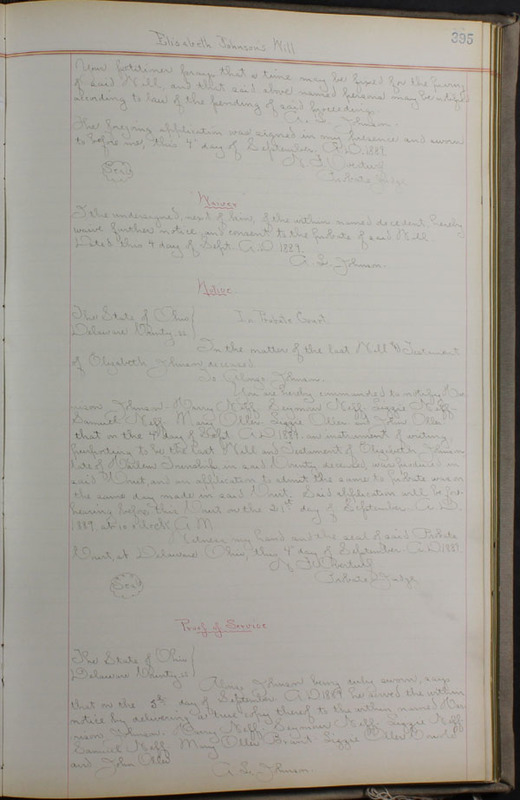 395
Elizabeth Johnson's Will
Your petitioner prays that a time may be fixed for the proving
of said Will, and that said above named persons may be notified
according to law of the pending of said proceeding.
A. L. Johnson.
The foregoing application was signed in my presence and sworn
to before me, this 4" day of September, A.D. 1889.
Probate Judge
Seal
Waiver
I the undersigned, next of kin, of the within named decedent, hereby
waive further notice, and consent to the probate of said Will.
Dated this 4 day of Sept. A.D. 1889.
A. L. Johnson.
Notice
The State of Ohio
Delaware County, ss
In Probate Court
In the matter of the last Will & Testament
of Elizabeth Johnson, deceased
To Johnson.
You are hereby commanded to notify
Johnson, Harry Neff, Seymour Neff, Lizzie Neff,
Samuel Neff, Mary Oller, Lizzie Oller and John Oller
that on the 4" day of Sept. A.D. 1889, an instrument of writing
purporting to be the last Will and Testament of Elizabeth Johnson
late of Township, in said County, deceased, was produced in
said Court, and an application to admit the same to probate was on
the same day made in said Court. Said application will be for
hearing before this Court on the 21st day of September A.D.
1889, at 10 o'clock A.M.
Witness my hand and the seal of said Probate
Court, at Delaware, Ohio, this 4" day of September A.D. 1889
Probate Judge
Seal
Proof of Service
The State of Ohio
Delaware County, ss
Johnson being duly sworn, says
that on the 5th day of September A.D. 1889 he served the within
notice by delivering a true copy thereof to the within named
Johnson, Harry Neff, Seymour Neff, Lizzie Neff,
Samuel Neff, Mary Oller Lizzie Oller
and John Oller
A. L. Johnson.